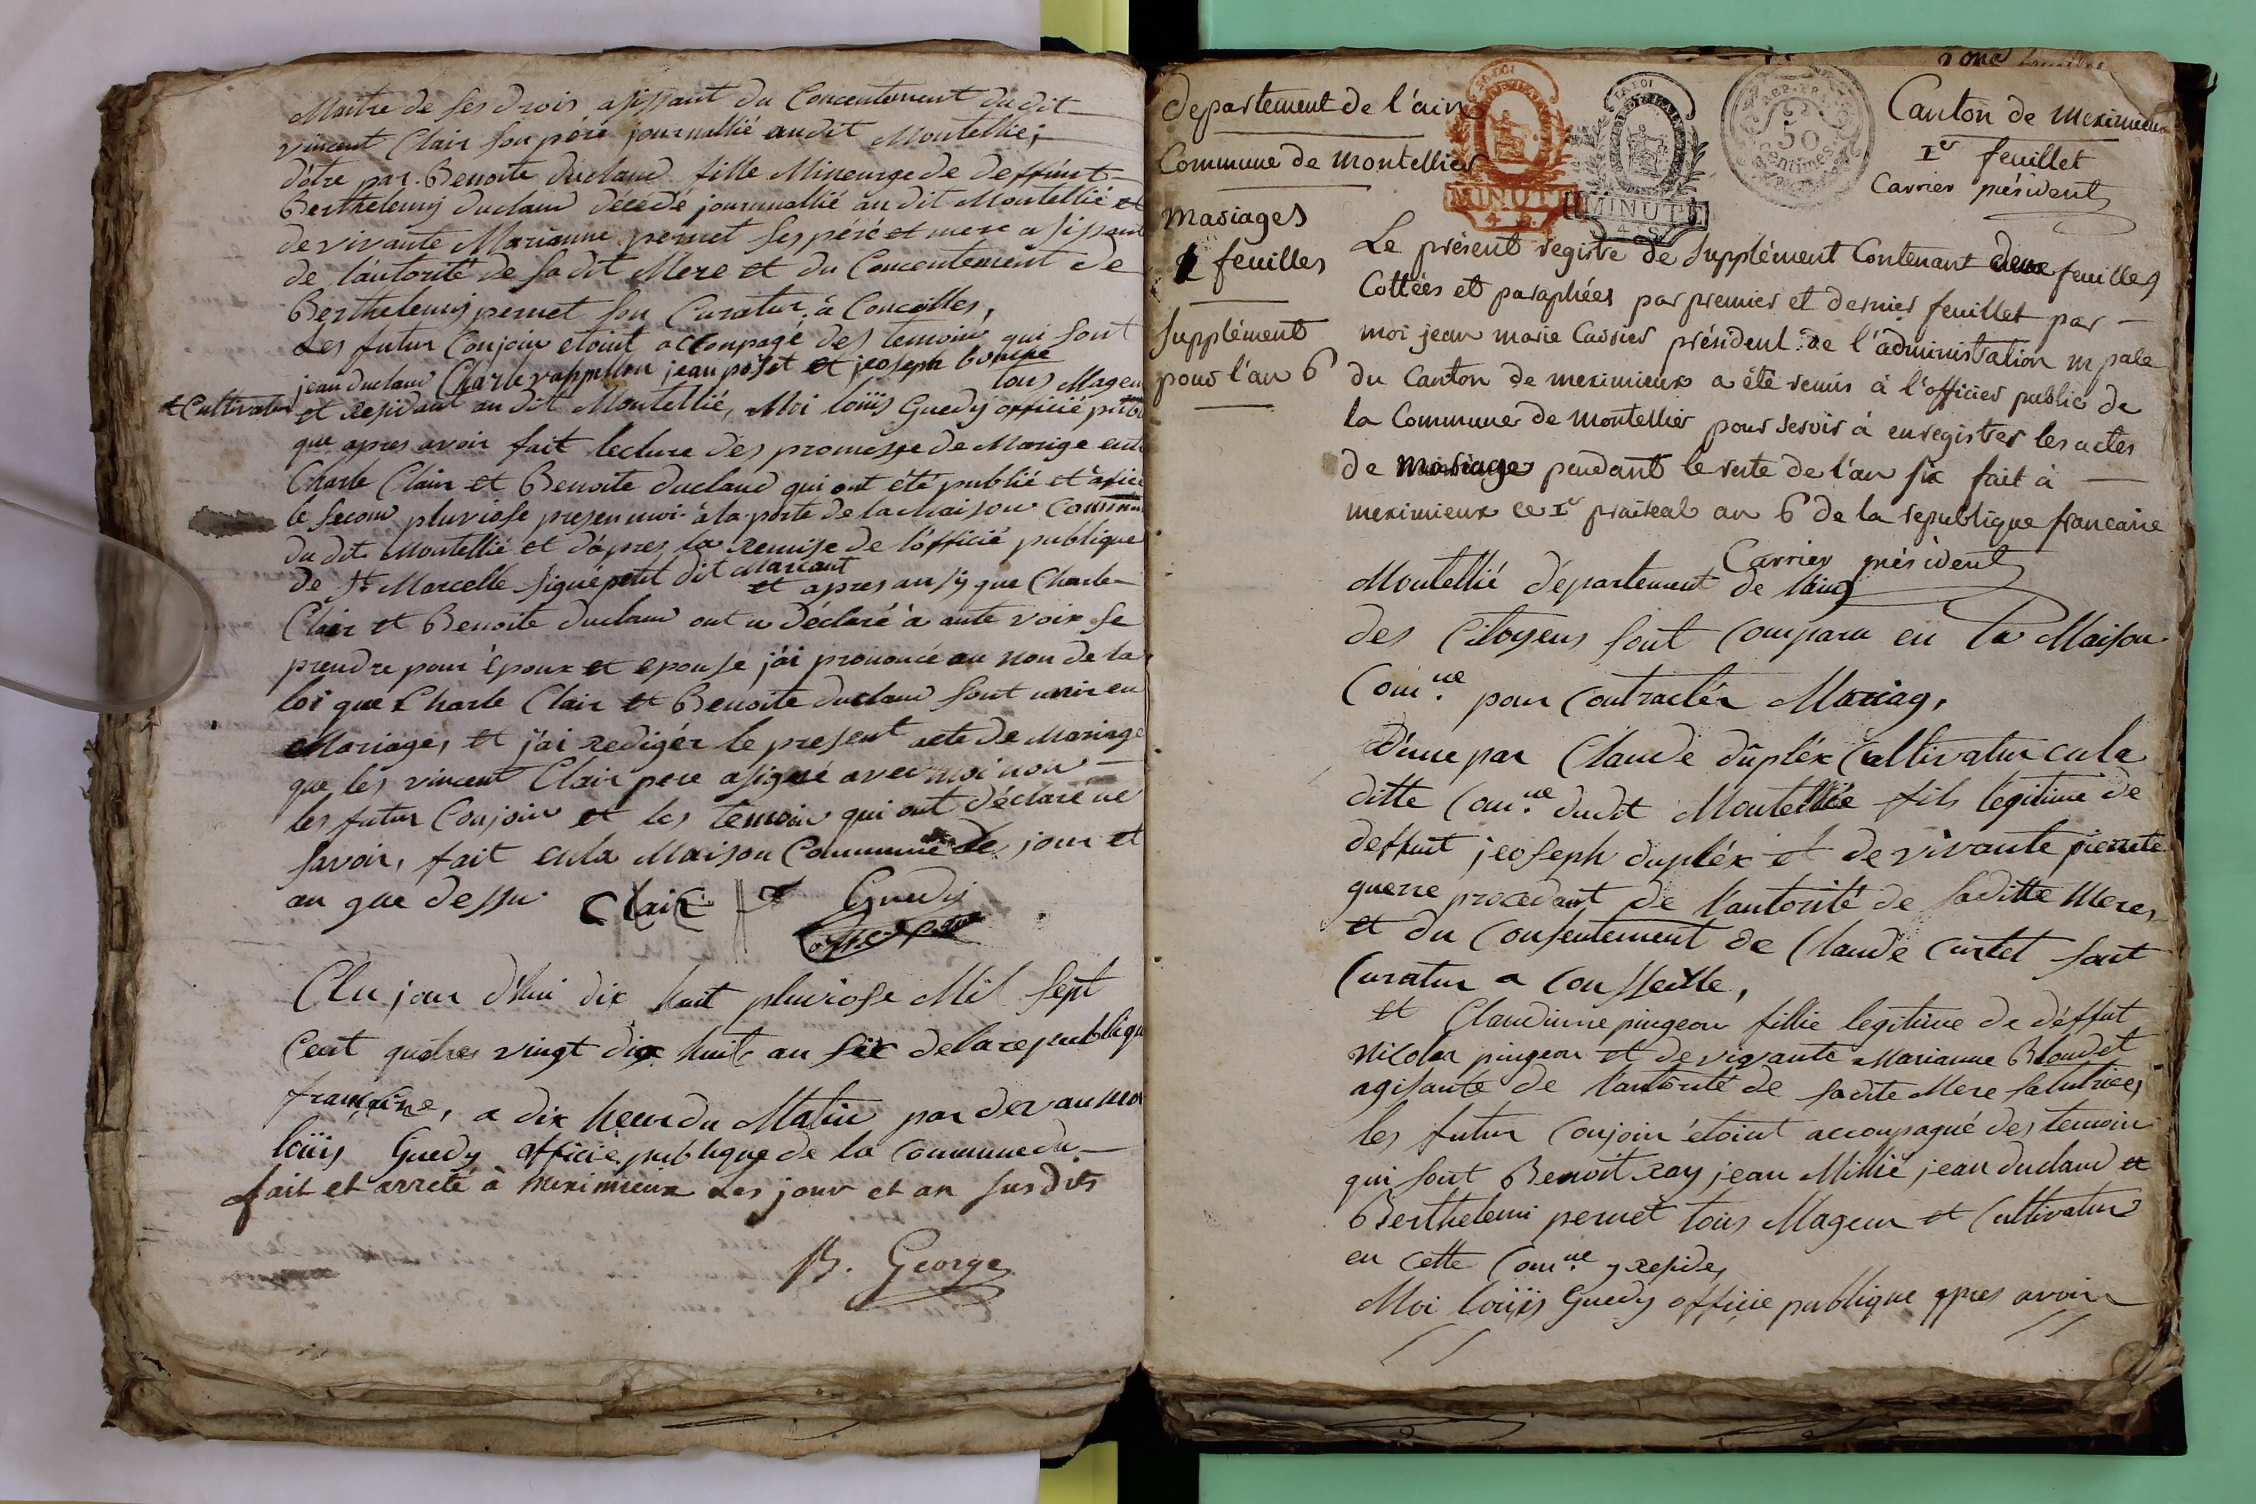 Maitre de ses drois asissant du Concentement du dit
vincent Clair son père journallié audit Montellié,
d'otre par Benoite duclaud fille Mineurge de deffunt
Berthelemy duclaud décédé journallié au dit Montellié et
de vivante Marianne pernet ses péré et mere asissant
de l'autorité de sa dit Mere et du Concentement de
Berthelemy pernet son Curatur à Conceilles,
Les futur Conjoin etoint accompagé des temoin qui sont
jean duclaud Charle jean et jeoseph tous Mageur
& Cultivatur et Residant au dit Montellié, Moi loüis Guedy officié publi
que apres avoir fait lecture des promesse de Marige entre
Charle Clair et Benoite duclaud qui ont été publié et afiche
le second pluviose presen moi à la porte de la Maison Commune
du dit Montellié et d'apres la Remise de l'officié publique
de St Marcelle signé petit dit Mariant et apres ausy que Charle
Clair et Benoite duclaud ont u déclaré à aute voix se
prendre pour époux et epouse j'ai prononcé au non de la
loi que Charle Clair et Benoite duclaud sont unir en
Mariage, et j'ai redigér le present acte de Mariage
que les vincent Clair pere asigné avec moi non
les futur Conjoin et les temoin qui ont déclaré ne
savoir, fait en la Maison Commune les jour et
an que dessu Clair Guedy
off. p.
Clu jour d'hui dix huit pluviose Mil sept
Cent quatres vingt dix huit an six de la republique
française, a dix heur du Matin par devan moi
loüis Guedy officié publique de la Commune du
fait et arreté à meximieux les jour et an susdits
B. George
departement de l'ain
Commune de montellier
mariages
feuilles
supplément
pour l'an 6
LA LOI
MINUTE
4 S.
LA LOI
MINUTE
4 S.
REP. FRA.
50
centimes
Canton de meximieux
1er feuillet
Carrier président
Le présent registre de supplément Contenant deux feuilles
Cottées et paraphées par premier et dernier feuillet par
moi jean marie Carrier président de l'administration mpale
du Canton de meximieux a été remis à l'officier public de
la Commune de montellier pour servir à enregistrer les actes
de mariage pendant le reste de l'an six fait à
meximieux ce 1er praireal an 6e de la republique francaise
Carrier président
Montellié département de l'ain
des Citoyens sont Comparu en la Maison
Comne pour Contractér Mariag,
d'une par Claude dupléx Cultivatur en la
ditte Comne dudit Montellié fils légitime de
deffunt jeoseph dupléx et de vivante pierrete
guerre procedant de l'autorité de saditte Mere,
et du Consentement de Claude Curtet sont
Curatur a Conseille,
et Claudinne pingeon fillie legitime de déffut
Nicolas pingeon et de vivante Marianne Blondet
agisante de l'autorité de sadite Mere sa tutrice,
les futur Conjoin étoint accompagné des temoin
qui sont Benoit ray jean Millié jean duclaud et
Berthelemi pernet tous Mageur et Cultivatur
en cette Comne y reside,
Moi loüis Guedy officie publique apres avoir